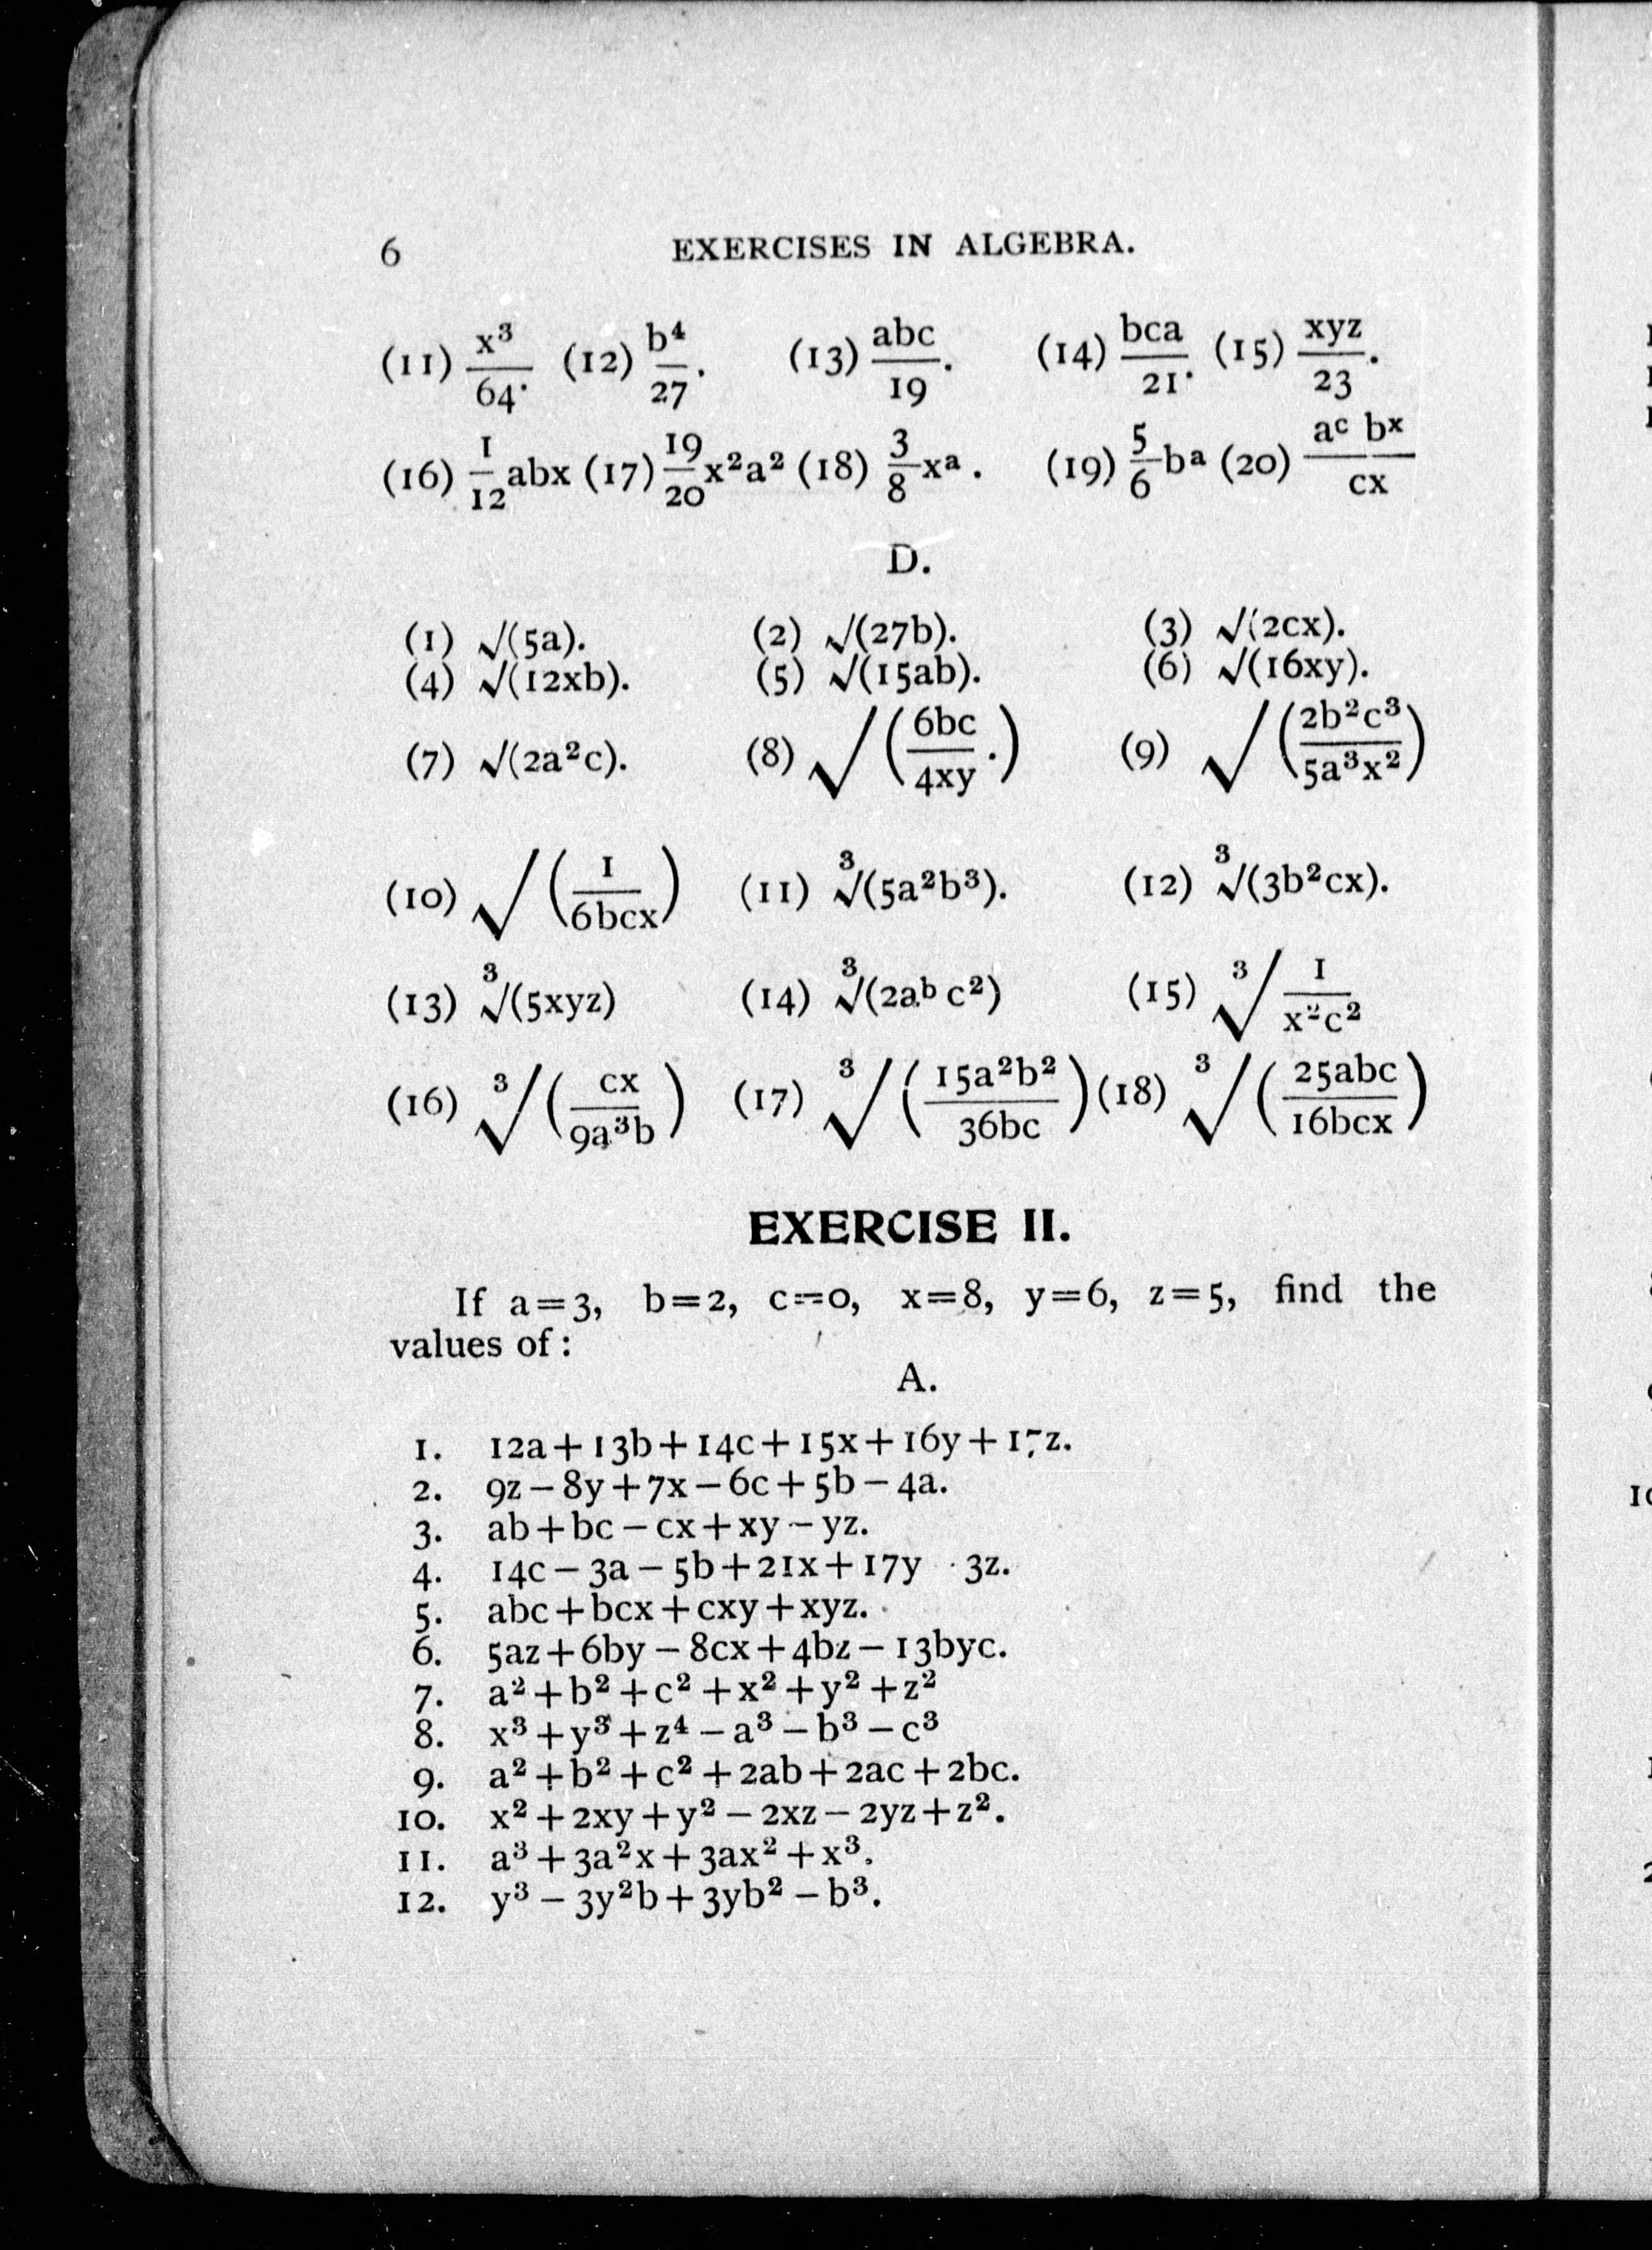 6 EXERCISES IN ALGEBRA.
(11) x³/64. (12) b⁴/27. (13) abc/19. (14) bca/21. (15) xyz/23.
(16) 1/12 abx (17) 19/20 x²a² (18) 3/8 xᵃ. (19) 5/6 bᵃ (20) aᶜ bˣ/cx
D.
(1) √(5a). (2) √(27b). (3) √(2cx).
(4) √(12xb). (5) √(15ab). (6) √(16xy).
(7) √(2a²c). (8) √(6bc/4xy.) (9) √(2b²c³/5a³x²)
(10) √(1/6bcx) (11) ∛(5a²b³). (12) ∛(3b²cx).
(13) ∛(5xyz) (14) ∛(2aᵇ c²) (15) ∛1/x²c²
(16) ∛(cx/9a³b) (17) ∛(15a²b²/36bc) (18) ∛(25abc/16bcx)
EXERCISE II.
If a=3, b=2, c=0, x=8, y=6, z=5, find the
values of:
A.
1. 12a+13b+14c+15x+16y+17z.
2. 9z−8y+7x−6c+5b−4a.
3. ab+bc−cx+xy−yz.
4. 14c−3a−5b+21x+17y 3z.
5. abc+bcx+cxy+xyz.
6. 5az+6by−8cx+4bz−13byc.
7. a²+b²+c²+x²+y²+z²
8. x³+y³+z⁴−a³−b³−c³
9. a²+b²+c²+2ab+2ac+2bc.
10. x²+2xy+y²−2xz−2yz+z².
11. a³+3a²x+3ax²+x³.
12. y³−3y²b+3yb²−b³.